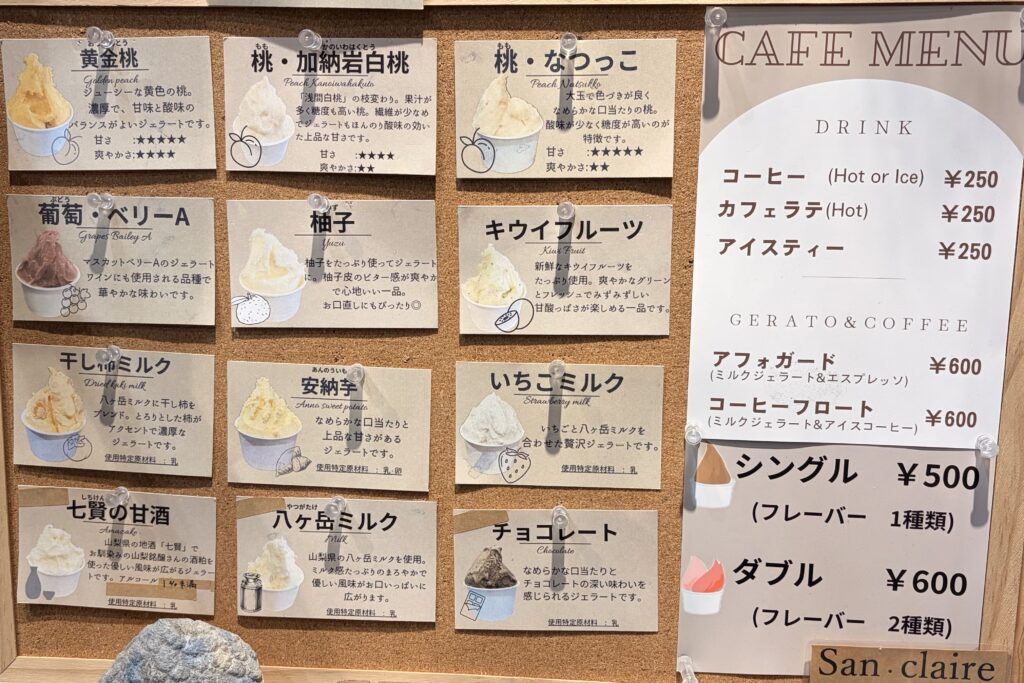 おうごんとう
黄金桃
Golden peach
ジューシーな黄色の桃。
濃厚で、甘味と酸味の
バランスがよいジェラートです。
甘さ　:★★★★★
爽やかさ:★★★★
もも　かのいわはくとう
桃・加納岩白桃
Peach Kanoiwahakuto
「浅間白桃」の枝変わり。果汁が
多く糖度も高い桃。繊維が少なめ
でジェラートもほんのり酸味の効い
た上品な甘さです。
甘さ　:★★★★
爽やかさ:★★
もも
桃・なつっこ
Peach Natsukko
大玉で色づきが良く
なめらかな口当たりの桃。
酸味が少なく糖度が高いのが
特徴です。
甘さ　:★★★★★
爽やかさ:★★
ぶどう
葡萄・ベリーA
Grapes Bailey A
マスカットベリーAのジェラート
ワインにも使用される品種で
華やかな味わいです。
ゆず
柚子
Yuzu
柚子をたっぷり使ってジェラート
に。柚子皮のビター感が爽やか
で心地いい一品。
お口直しにもぴったり◎
キウイフルーツ
Kiwi Fruit
新鮮なキウイフルーツを
たっぷり使用。爽やかなグリーン
とフレッシュでみずみずしい
甘酸っぱさが楽しめる一品です。
干し柿ミルク
Dried kaki milk
八ヶ岳ミルクに干し柿を
ブレンド。とろりとした柿が
アクセントで濃厚な
ジェラートです。
使用特定原材料　：乳
あんのういも
安納芋
Anno sweet potato
なめらかな口当たりと
上品な甘さがある
ジェラートです。
使用特定原材料　：乳・卵
いちごミルク
Strawberry milk
いちごと八ヶ岳ミルクを
合わせた贅沢ジェラートです。
使用特定原材料　：乳
しちけん
七賢の甘酒
Amazake
山梨県の地酒「七賢」で
お馴染みの山梨銘醸さんの酒粕を
使った優しい風味が広がるジェラー
トです。アルコール1%未満
使用特定原材料　：乳
やつがたけ
八ヶ岳ミルク
Milk
山梨県の八ヶ岳ミルクを使用。
ミルク感たっぷりのまろやかで
優しい風味がお口いっぱいに
広がります。
使用特定原材料　：乳
チョコレート
Chocolate
なめらかな口当たりと
チョコレートの深い味わいを
感じられるジェラートです。
使用特定原材料　：乳
CAFE MENU
DRINK
コーヒー　(Hot or Ice)　￥250
カフェラテ(Hot)　￥250
アイスティー　￥250
GERATO&COFFEE
アフォガード　￥600
(ミルクジェラート&エスプレッソ)
コーヒーフロート　￥600
(ミルクジェラート&アイスコーヒー)
シングル　￥500
(フレーバー　1種類)
ダブル　￥600
(フレーバー　2種類)
San.claire